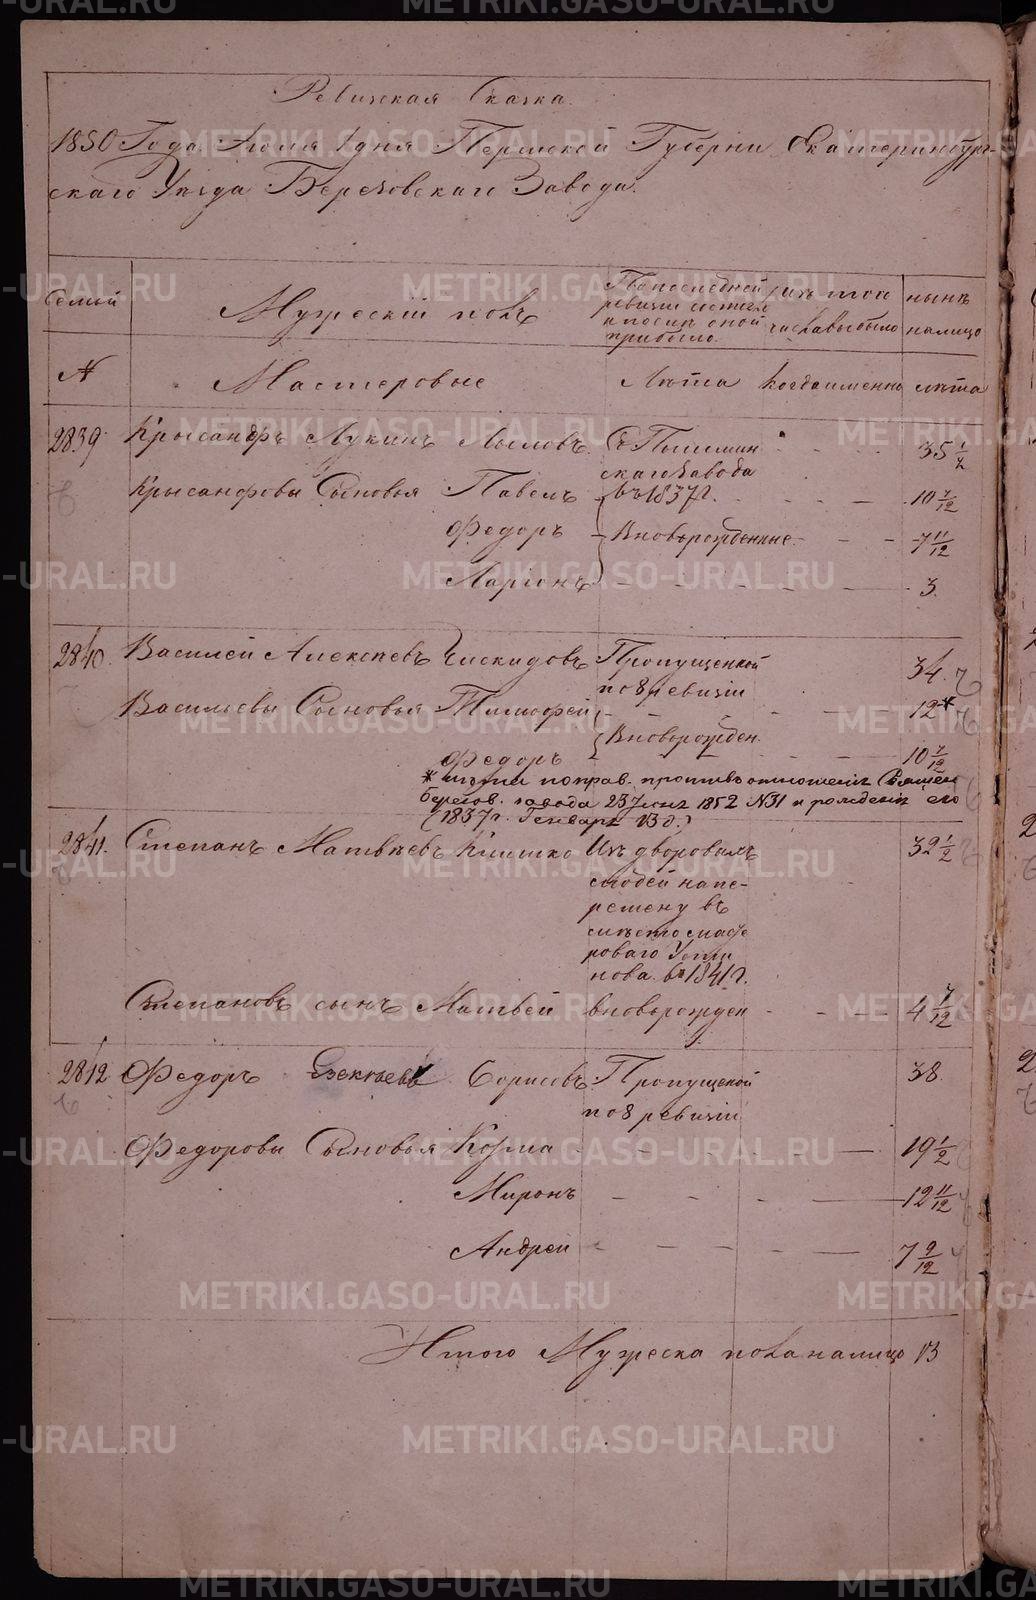 Ревизская Сказка.
1850 Года Июля 1 дня Пермской Губернии Екатеринбург-
скаго Уезда Березовскаго Завода.
Семьи
Мужескiй полъ
По последней ревизiи состояло и после оной прибыло.
изъ того числа выбыло
ныне налицо
№
Мастеровые
Лѣта
Когда именно
лѣта
2839. Крысанфъ Лукинъ Лысловъ. Съ Пышмин
скаго Завода
въ 1837 г. 35 1/2
Крысанфовы Сыновья Павелъ 10 7/12
Федоръ Вновьрожденные 7 11/12
Ларiонъ 3.
2840. Василей Алексѣевъ Пропущенной
по 8 ревизiи 34.
Васильевы Сыновья Тимофей 12*
Вноворожден.
Федоръ 10 7/12
* лѣта поправ. противъ отношенiя
Березов. завода 23 1852 №31 и рожденiя его
(1837 г. Генваря 13 д.)
2841. Степанъ Матвѣевъ Клишко Изъ дворовыхъ
людей напе-
ремену въ
место масте
роваго Усти
нова въ 1841 г. 32 1/2
Степановъ сынъ Матвей вновьрожден 4 7/12
2842 Федоръ Борисовъ Пропущеной
по 8 ревизiи 38.
Федоровы Сыновья Козма 19 1/2
Миронъ 12 11/12
Андрей 7 9/12
Итого Мужеска пола налицо 13
METRIKI.GASO-URAL.RU